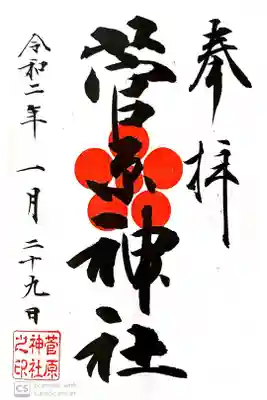 奉拝
菅原神社
令和二年一月二十九日
菅原
神社
之印
CS Scanned with
CamScanner